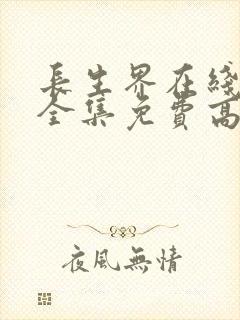 長生界在綫
全集免費高
夜風無情